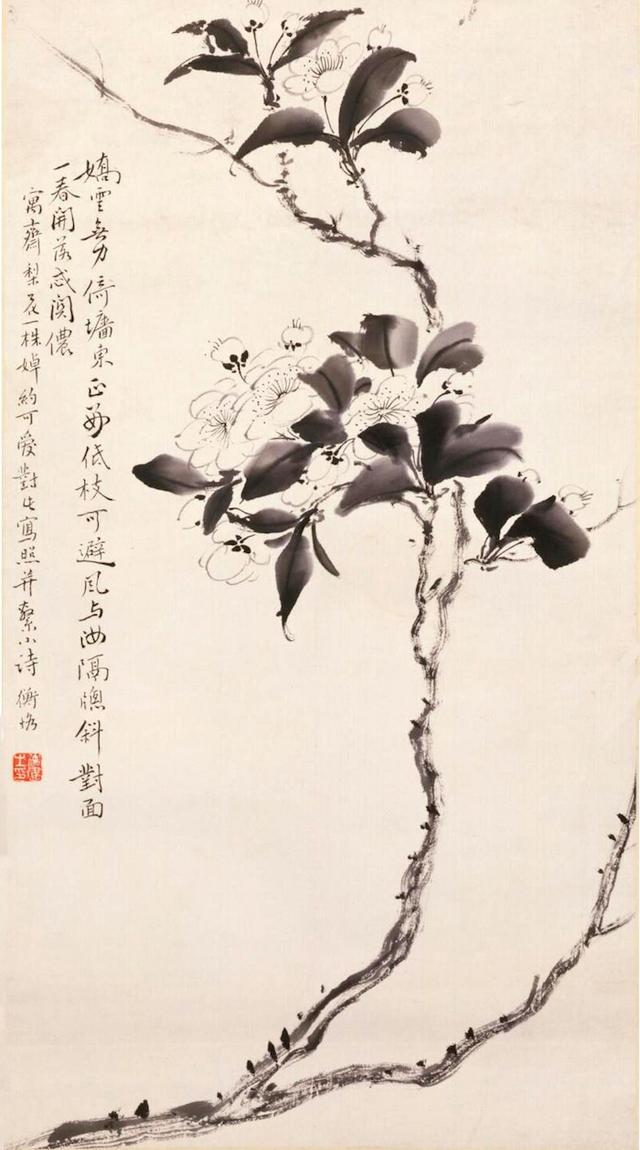 嬌雲無力倚墻東正低枝可避風与汝隔牕斜對面
一春開落感關儂
寓齋梨花一株婥約可愛對寫照并繫小詩 衡恪